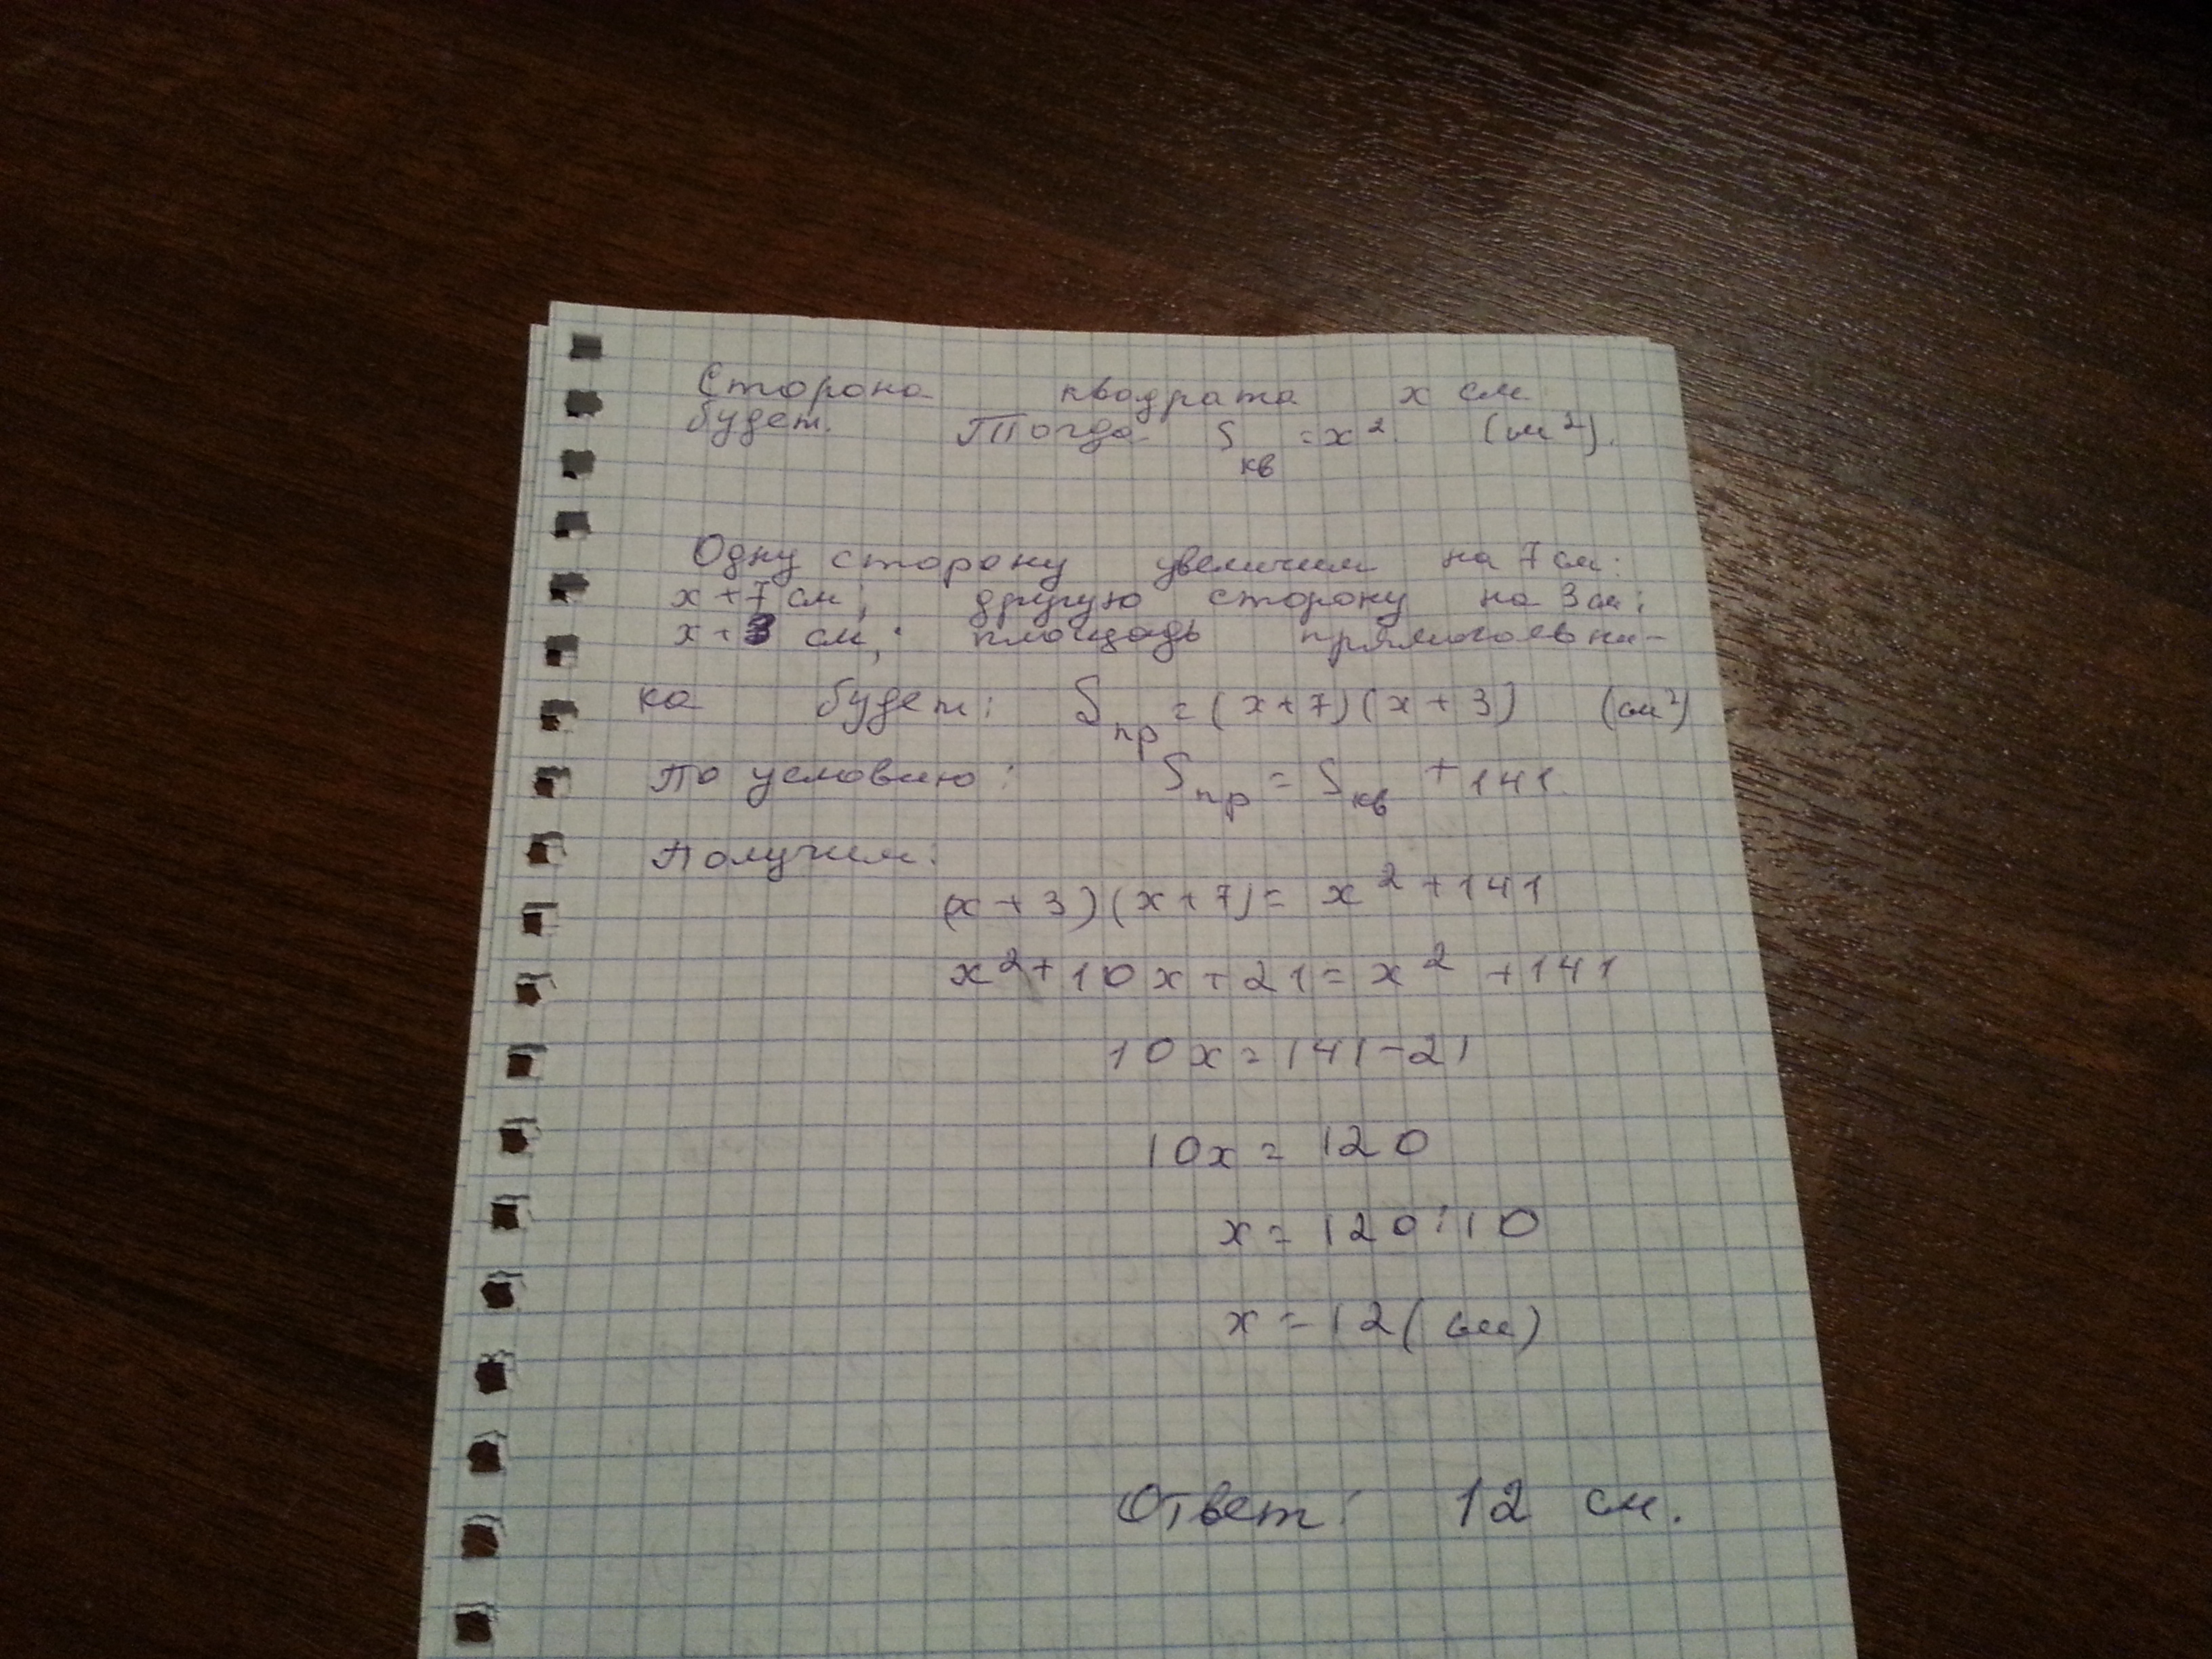 Сторона квадрата x см
будет. Тогда S кв = x² (см²).
Одну сторону увеличим на 7 см:
x + 7 см; другую сторону на 3 см;
x + 3 см; площадь прямоголвни-
ка будет: S пр = (x+7)(x+3) (см²)
По условию: S пр = S кв + 141.
Получим:
(x+3)(x+7) = x² + 141
x² + 10x + 21 = x² + 141
10x = 141 - 21
10x = 120
x = 120 : 10
x = 12 (см)
Ответ: 12 см.